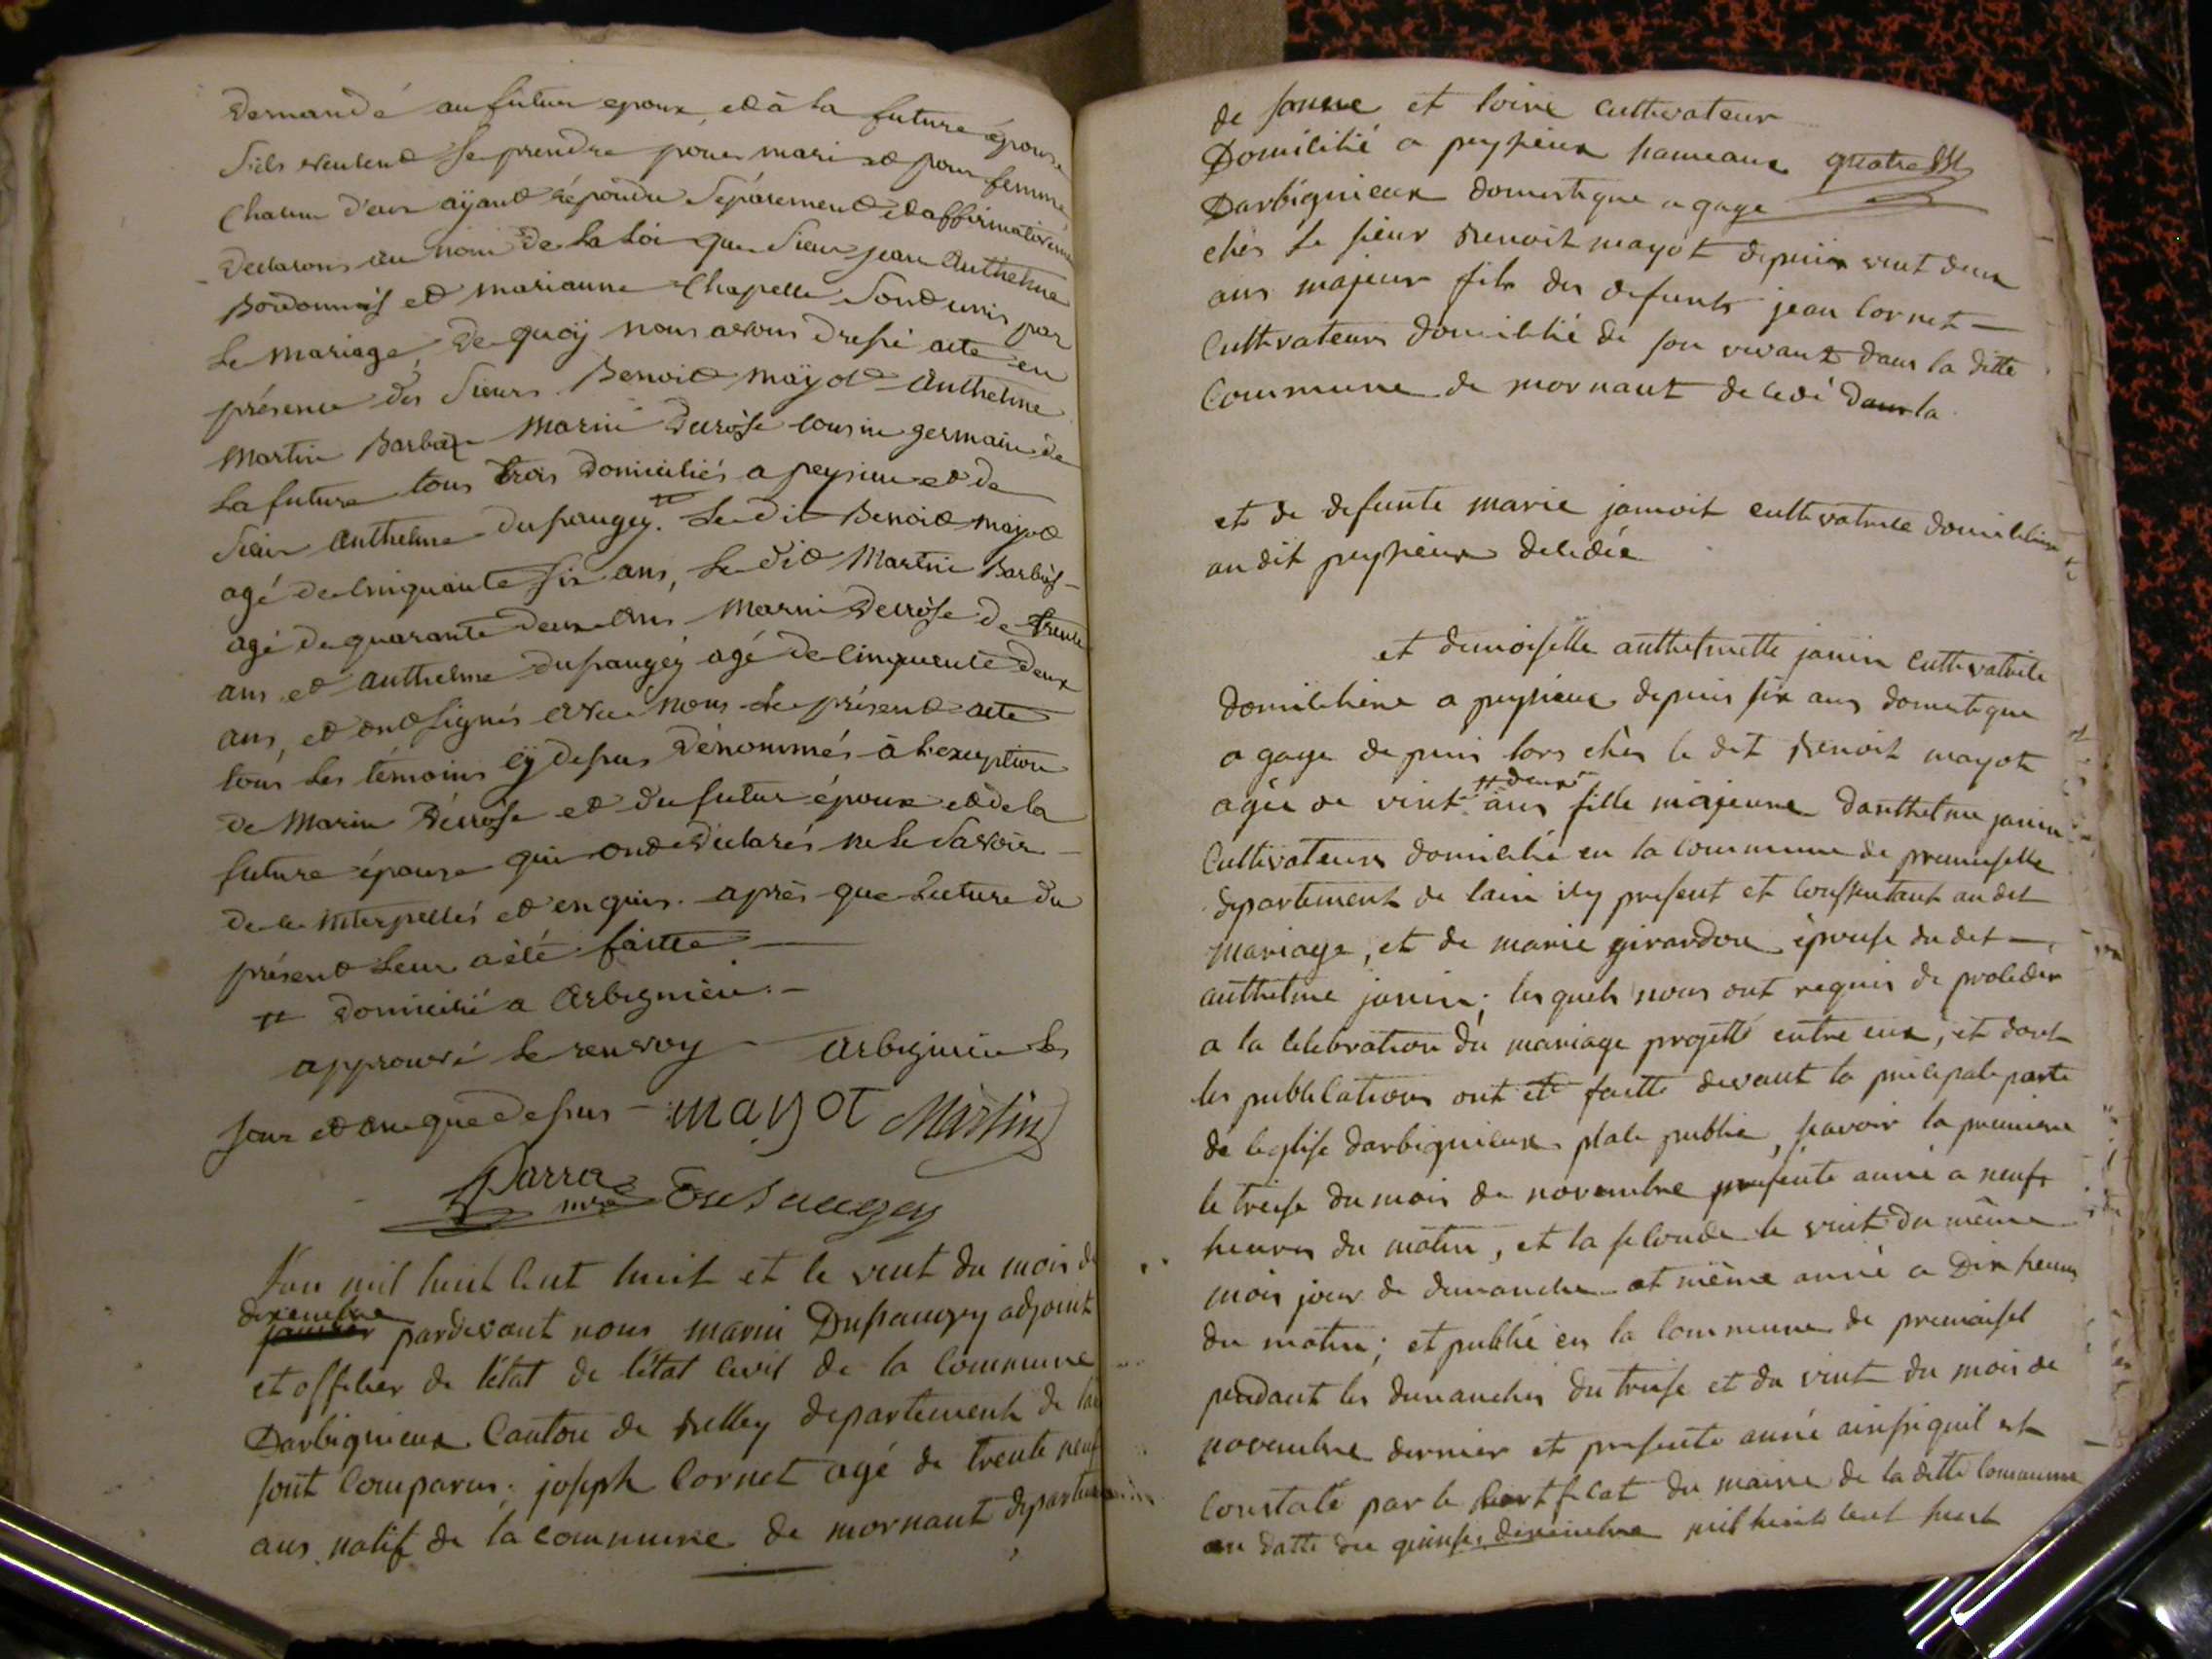 demandé au futur epoux et à la future épouse
s'ils veulent se prendre pour mari et pour femme,
chacun d'eux aÿant répondu séparement et affirmativeme
declarons au nom de la loi que sieur jean Anthelme
Bordonnas et marianne Chapelle sont unis par
le mariage, de quoÿ nous avons dressé acte en
présence des sieurs Benoit maÿot Anthelme
Martin Barbaz Marin Decrose cousin germain de
la future tous trois domiciliés a peysieu et de
sieur Anthelme dusaugey. # Le dit Benoit mayot
agé de cinquante six ans, Le dit Martin Barbas
agé de quarante deux ans Marin Decrose de trente
ans et Anthelme dusaugey agé de cinquente deux
ans, et ont signés avec nous le présent acte
tous les témoins cÿ dessus dénommés à l'exception
de Marin Décrose et du futur époux et de la
future épouse qui ont déclarés ne le savoir
de ce interpellés et enquis. après que Lecture du
présent leur a été faitte
# domicilié a Arbignieu. –
approuvé le renvoy Arbignieu les
jour et an que dessus – mayot Martin
Parra mre Dusaugey
L'an mil huit cent huit et le vint du mois de
dixembre
janvier pardevant nous marin Dusaugey adjoint
et officier de l'état de l'état civil de la commune
Darbignieux Canton de Belley departement de lain
sont comparus. joseph Cornet agé de trente neuf
ans natif de la commune de mornant departem
de sonne et loire cultivateur
Domicilié a peysieux hameaux quatre
Darbignieux domestique a gage
ches le sieur Benoit mayot depuis vint deux
ans majeur fils des defunts jean Cornet –
Cultivateur domicilié de son vivant dans la ditte
Commune de mornant decedé dans la
et de defunte marie janvoit cultivatrice domiciliée
au dit peysieux decedée
et demoiselle anthelmette janin cultivatrice
domiciliere a peysieux depuis six ans domestique
a gage depuis lors chès le dit Benoit mayot
# deux
agée de vint ans fille majeure danthelme janin
Cultivateur domicilié en la commune de premeselle
departement de lain icy present et consentant au dit
mariage, et de marie girardon épouse du dit –
anthelme janin; lesquels nous ont requis de proceder
a la celebration du mariage projetté entre eux, et dont
les publications ont été faitte devant la principale porte
de leglise darbignieux place public, savoir la premiere
le treise du mois de novembre presente année a neufs
heures du matin, et la seconde le vint du même
mois jour de dimanche et même année a Dix heures
du matin; et publié en la commune de premeisel
pendant les dimanches du treise et du vint du mois de
novembre dernier et presente année ainsi quil est
constaté par le certificat du maire de la ditte commune
en datte du quinse dixcembre mil huit cent huit